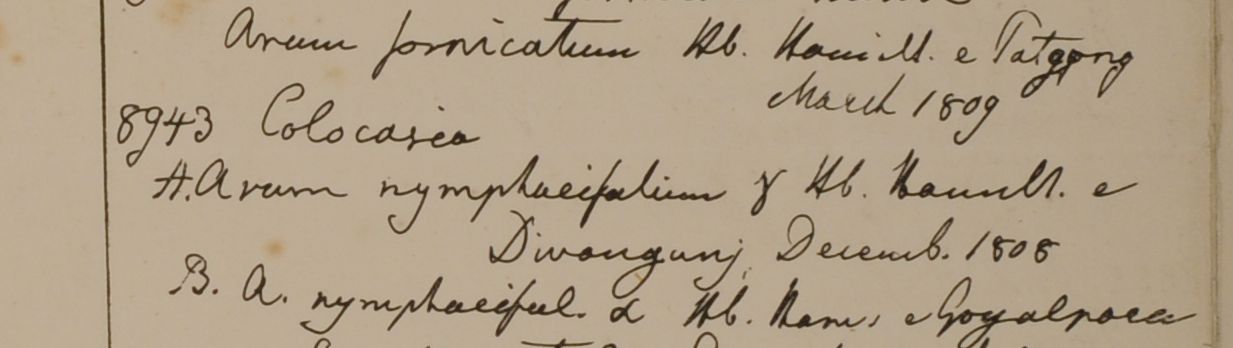 Arum fornicatum Hb. Hamilt. e Tatgong
March 1809
8943 Colocasia
A. Arum nymphaeifolium γ Hb. Hamilt. e
Diwangunj, Decemb. 1808
B. A. nymphaeifol. α Hb. Ham. e Goyalpara